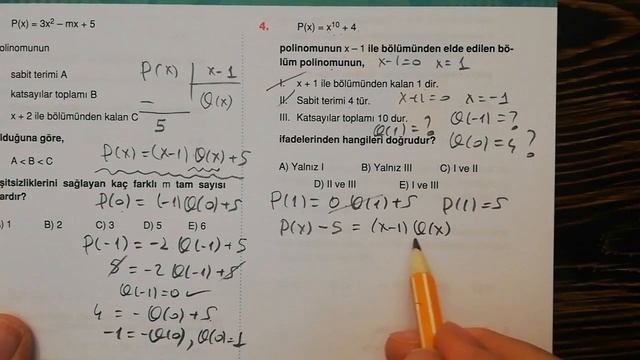 P(x) = 3x² – mx + 5
olinomunun
sabit terimi A
katsayılar toplamı B
x + 2 ile bölümünden kalan C
lduğuna göre,
A < B < C
şitsizliklerini sağlayan kaç farklı m tam sayısı
ardır?
) 1 B) 2 C) 3 D) 5 E) 6
P(x) x-1
Q(x)
5
P(x)=(x-1) Q(x)+5
P(0)=(-1)Q(0)+5
P(-1)=-2 Q(-1)+5
5=-2 Q(-1)+5
Q(-1)=0
4=-Q(0)+5
-1=-Q(0), Q(0)=1
4. P(x) = x¹⁰ + 4
polinomunun x – 1 ile bölümünden elde edilen bö-
lüm polinomunun, x-1=0 x=1
I. x + 1 ile bölümünden kalan 1 dir.
II. Sabit terimi 4 tür. x+1=0 x=-1
III. Katsayılar toplamı 10 dur. Q(-1)=?
Q(1)=?
ifadelerinden hangileri doğrudur? Q(0)=4?
A) Yalnız I B) Yalnız III C) I ve II
D) II ve III E) I ve III
P(1)=0 Q(1)+5 P(1)=5
P(x)-5=(x-1)Q(x)